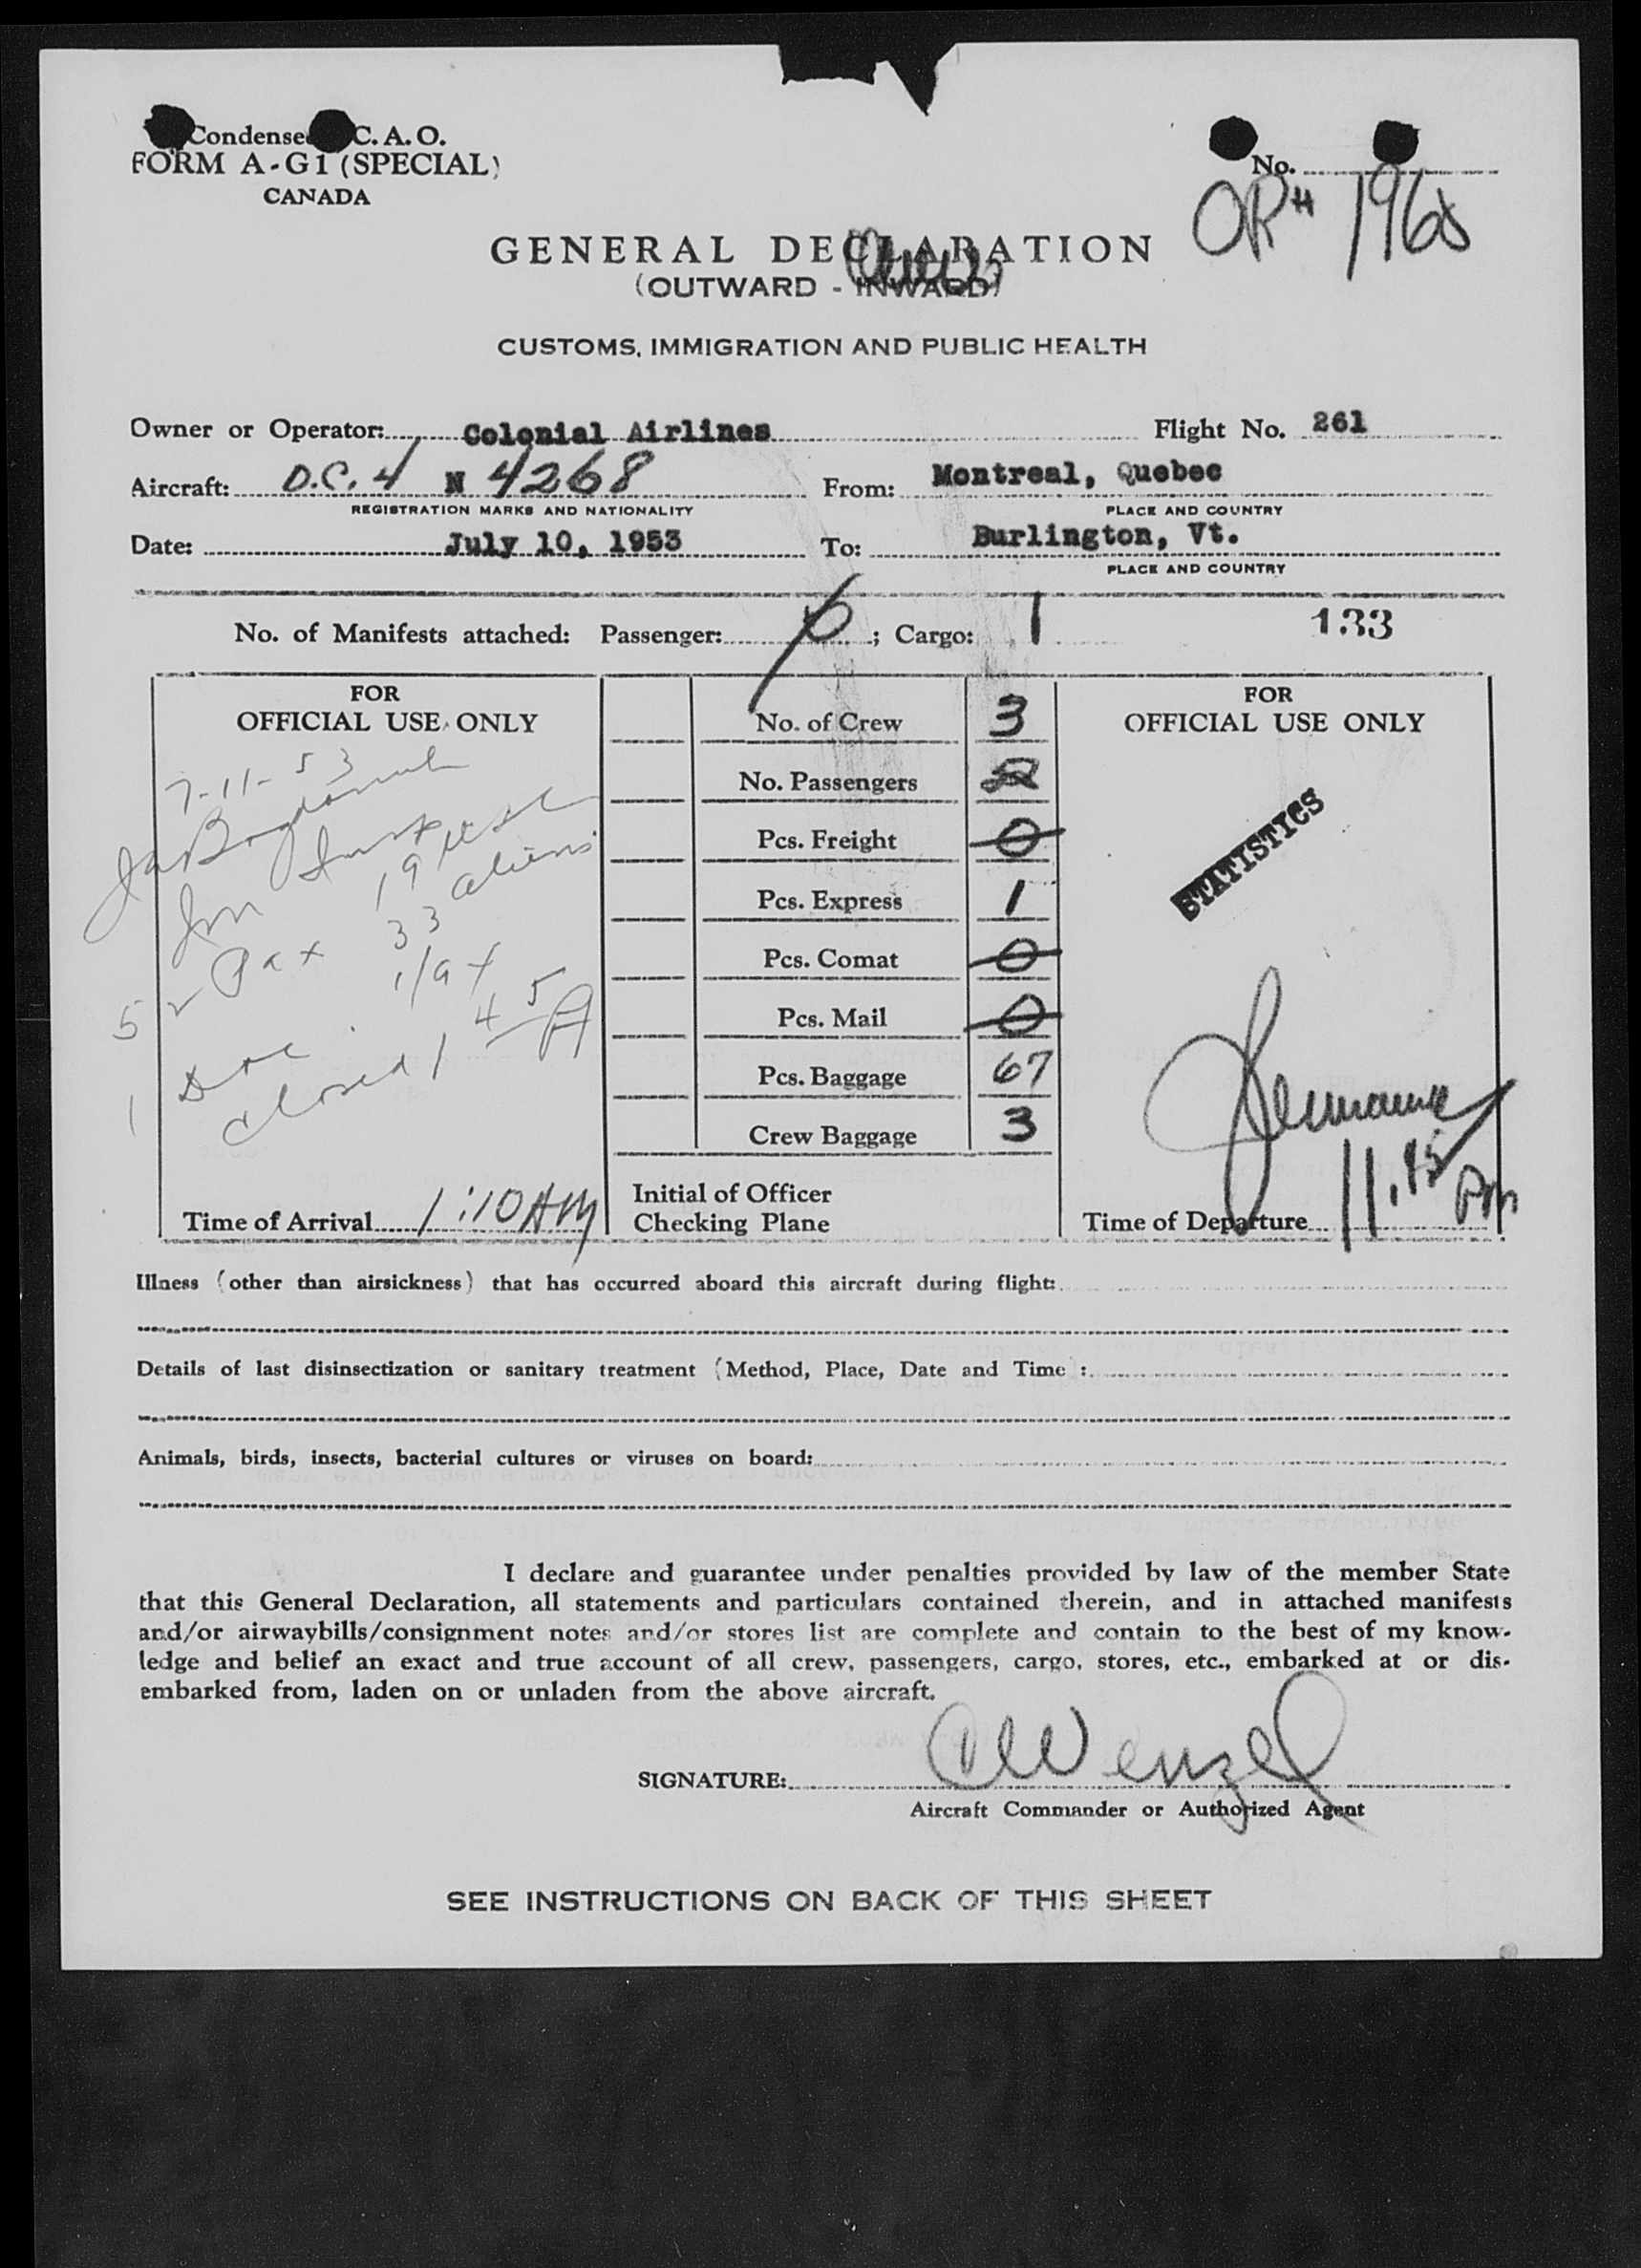 Condensed C. A. O.
FORM A-G1 (SPECIAL)
CANADA
No.
OR# 1968
GENERAL DECLARATION
(OUTWARD - INWARD)
CUSTOMS, IMMIGRATION AND PUBLIC HEALTH
Owner or Operator: Colonial Airlines Flight No. 261
Aircraft: D.C. 4 N 4268 From: Montreal, Quebec
REGISTRATION MARKS AND NATIONALITY PLACE AND COUNTRY
Date: July 10, 1953 To: Burlington, Vt.
PLACE AND COUNTRY
No. of Manifests attached: Passenger: ; Cargo: 1 133
FOR
OFFICIAL USE ONLY
7-11-53
Imm
19
52 Pax 33 aliens
closed 1 45 A
Time of Arrival 1:10 AM
No. of Crew 3
No. Passengers 52
Pcs. Freight 0
Pcs. Express 1
Pcs. Comat 0
Pcs. Mail 0
Pcs. Baggage 67
Crew Baggage 3
Initial of Officer
Checking Plane
FOR
OFFICIAL USE ONLY
STATISTICS
Time of Departure 11.45 Pm
Illness (other than airsickness) that has occurred aboard this aircraft during flight:
Details of last disinsectization or sanitary treatment (Method, Place, Date and Time :
Animals, birds, insects, bacterial cultures or viruses on board:
I declare and guarantee under penalties provided by law of the member State
that this General Declaration, all statements and particulars contained therein, and in attached manifests
and/or airwaybills/consignment notes and/or stores list are complete and contain to the best of my know-
ledge and belief an exact and true account of all crew, passengers, cargo, stores, etc., embarked at or dis-
embarked from, laden on or unladen from the above aircraft.
SIGNATURE: Wenzel
Aircraft Commander or Authorized Agent
SEE INSTRUCTIONS ON BACK OF THIS SHEET